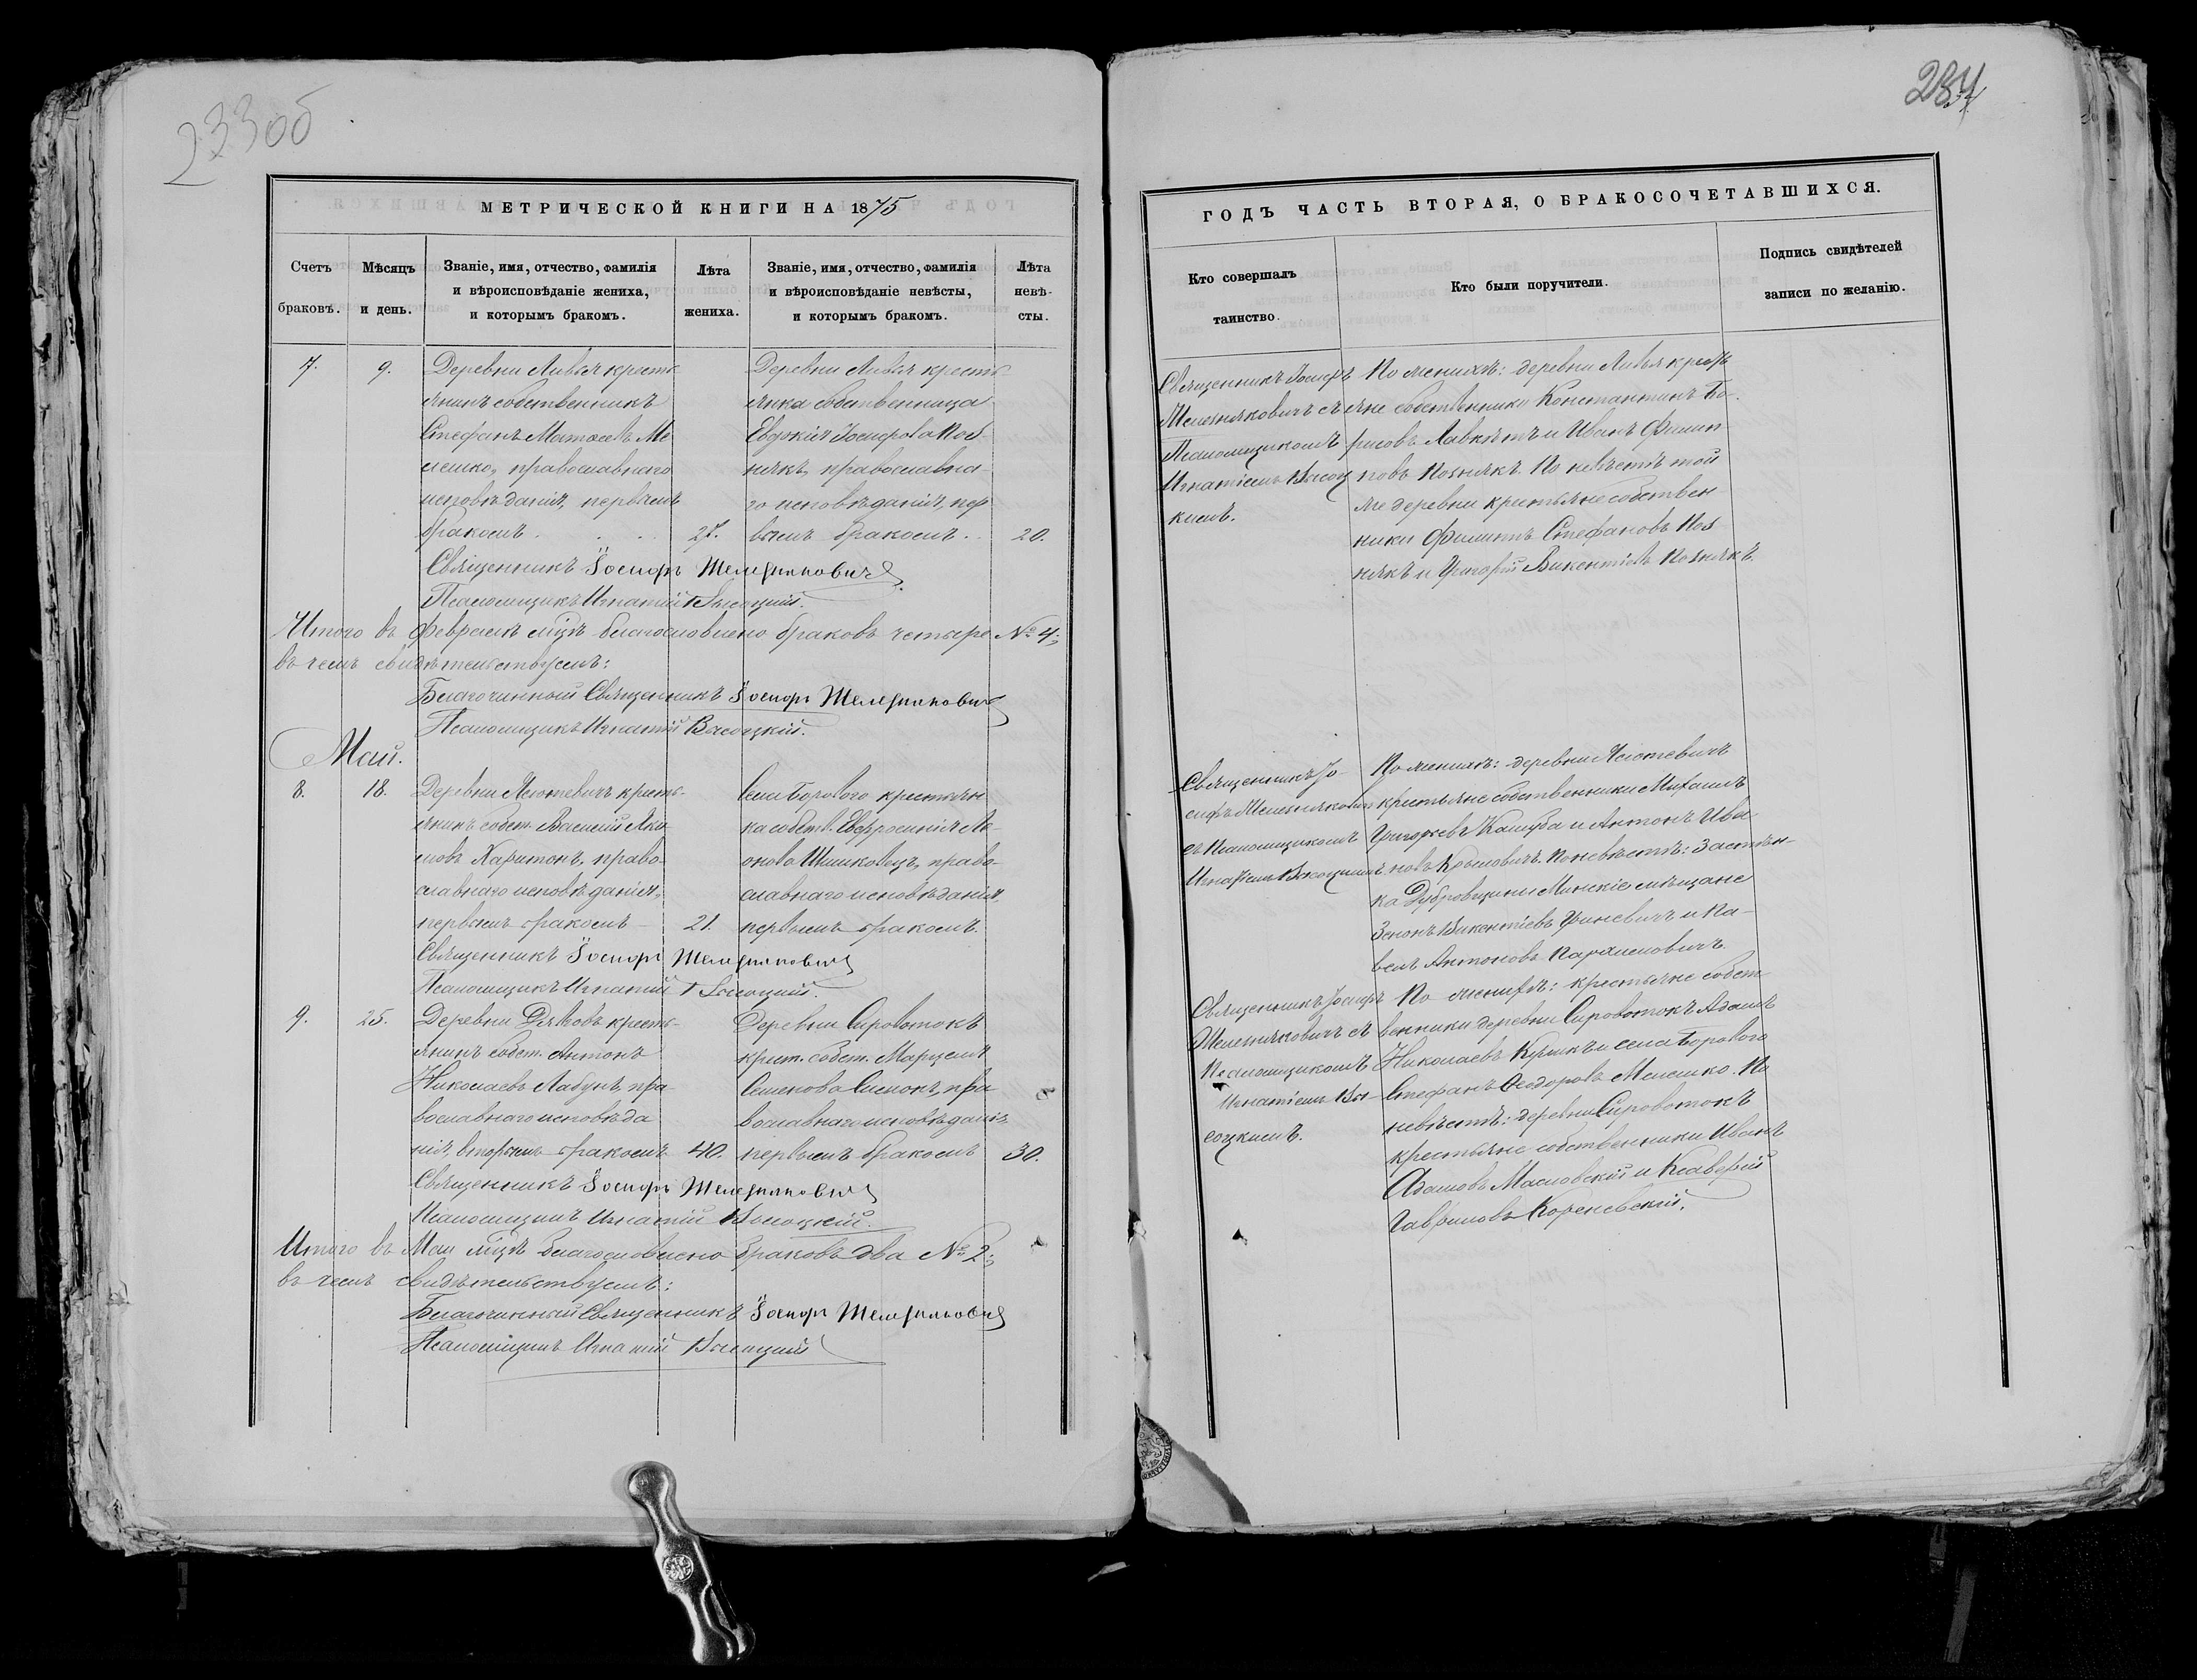 233об
МЕТРИЧЕСКОЙ КНИГИ НА 1875
Счетъ
браковъ.
Мѣсяцъ
и день.
Званіе, имя, отчество, фамилія
и вѣроисповѣданіе жениха,
и которымъ бракомъ.
Лѣта
жениха.
Званіе, имя, отчество, фамилія
и вѣроисповѣданіе невѣсты,
и которымъ бракомъ.
Лѣта
невѣ-
сты.
7.
9.
Деревни Ливья кресть
янинъ собственникъ
Стефанъ Матѳеевъ Ме
лешко, православнаго
исповѣданія, первымъ
бракомъ.
27.
Деревни Ливья кресть
янка собственница
Евдокія Іосифова Поз-
някъ, православна-
го исповѣданія, пер
вымъ бракомъ.
20.
Священникъ Іосифъ Железняковичъ
Псаломщикъ Игнатій Высоцкій.
Итого въ Февралѣ мцѣ благословлено браковъ четыре № 4;
въ чемъ свидѣтельствуемъ:
Благочинный Священникъ Іосифъ Железняковичъ
Псаломщикъ Игнатій Высоцкій.
Май.
8.
18.
Деревни кресть-
янинъ собст. Василій Яки
мовъ Харитонъ, право-
славнаго исповѣданія,
первымъ бракомъ
21.
Села Борового крестьян
ка собств. Евфросинія Ле-
онова Шишковецъ, право-
славнаго исповѣданія,
первымъ бракомъ.
Священникъ Іосифъ Железняковичъ
Псаломщикъ Игнатій Высоцкій.
9.
25.
Деревни Дяговъ кресть-
янинъ собст. Антонъ
Николаевъ Лабунъ, пра-
вославнаго исповѣда
нія, вторымъ бракомъ
40.
Деревни Сировотокъ
крест. собст. Марцеля
Семенова Симокъ, пра
вославнаго исповѣданія,
первымъ бракомъ
30.
Священникъ Іосифъ Железняковичъ
Псаломщикъ Игнатій Высоцкій.
Итого въ Маи мцѣ благословлено браковъ два № 2;
въ чемъ свидѣтельствуемъ:
Благочинный Священникъ Іосифъ Железняковичъ
Псаломщикъ Игнатій Высоцкій
234
ГОДЪ ЧАСТЬ ВТОРАЯ, О БРАКОСОЧЕТАВШИХСЯ.
Кто совершалъ
таинство.
Кто были поручители.
Подпись свидѣтелей
записи по желанію.
Священникъ Іосифъ
Железняковичъ съ
Псаломщикомъ
Игнатіемъ Высоц
кимъ.
По женихѣ: деревни Ливья кресть
яне собственники Константинъ Бо-
рисовъ Лавкетъ и Иванъ Филип
повъ Познякъ. По невѣстѣ той
же деревни крестьяне собствен-
ники Филиппъ Стефановъ Поз
някъ и Григорій Викентіевъ Познякъ.
Священникъ Іо-
сифъ Железняковичъ
съ Псаломщикомъ
Игнатіемъ Высоцкимъ
По женихѣ: деревни
крестьяне собственники Михаилъ
Григорьевъ Кашуба и Антонъ Ива
новъ Крымовичъ. По невѣстѣ: Застѣн-
ка Дубровщины Минскіе мѣщане
Зенонъ Викентіевъ Гриневичъ и Па-
велъ Антоновъ Пархимовичъ.
Священникъ Іосифъ
Железняковичъ съ
Псаломщикомъ
Игнатіемъ Вы-
соцкимъ.
По женихѣ: крестьяне собст
венники деревни Сировотокъ Адамъ
Николаевъ и села Борового
Стефанъ Ѳеодоровъ Мелешко. По
невѣстѣ: деревни Сировотокъ
крестьяне собственники Иванъ
Адамовъ Масловскій и Ксаверій
Гавриловъ Кореневскій.